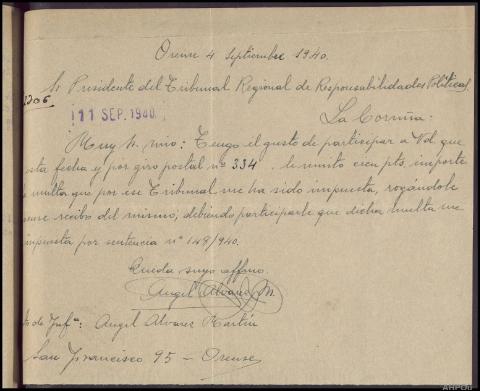 Orense 4 Septiembre 1940.
Sr Presidente del Tribunal Regional de Responsabilidades Políticas
11 SEP. 1940
La Coruña:
Muy S. mio: Tengo el gusto de participar a Vd. que
esta fecha y por giro postal nº 334 le remito cien pts. importe
multa que por ese Tribunal me ha sido impuesta, rogándole
acuse recibo del mismo; debiendo participarle que dicha multa me
impuesta por sentencia nº 149/940.
Queda suyo affmo.
Angel Alvarez M.
de Inf.ª: Angel Alvarez Martín
San Francisco 95 - Orense
AHPOu